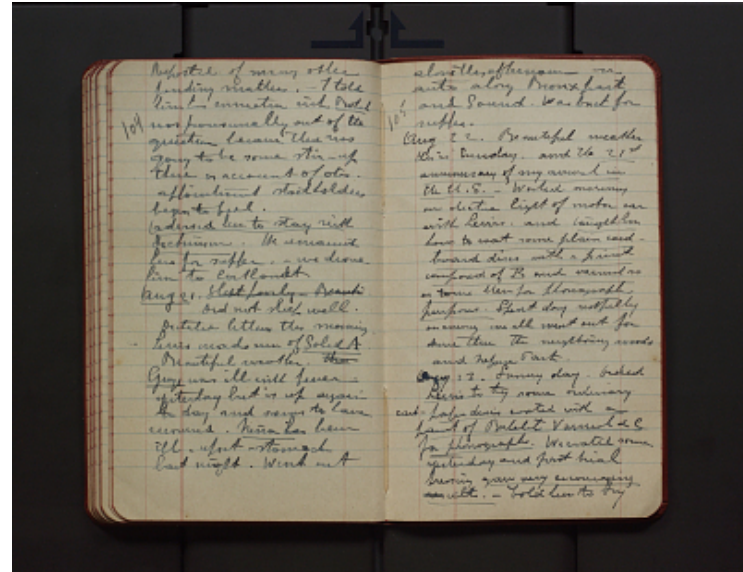 104
of many other
pending matters. - I told
him
was personally out of the
question because there was
going to be some stir-up
there on account of
stockholders
began to feel.
Advised him to stay with
He remained
here for supper. - we drove
him to Cortlandt
Aug 21.
Did not sleep well.
Dictated letters this morning
Lewis made me of Solid A.
Beautiful weather.
was ill with fever
yesterday but is up again
to day and seems to have
recovered. Nina has been
ill - upset stomach
last night. Went out
105
afternoon in
auto along Bronx Park
and Sound. Was back for
supper.
Aug 22. Beautiful weather
this Sunday. and the 21st
anniversary of my arrival in
the U.S. - Worked morning
on electric light of motor car
with Lewis. and taught him
how to coat some plain card-
board discs with a
composed of B and varnish so
as to use them for phonograph
purposes. Spent day restfully
in evening we all went out for
drive thru the neighboring woods
and Park.
Aug 23. Sunny day. Asked
Lewis to try some ordinary
card paper discs coated with a
paint of Bakelite Varnish & C
for phonograph. We coated some
yesterday and first trial
evening gave very encouraging
results. - Told him to try